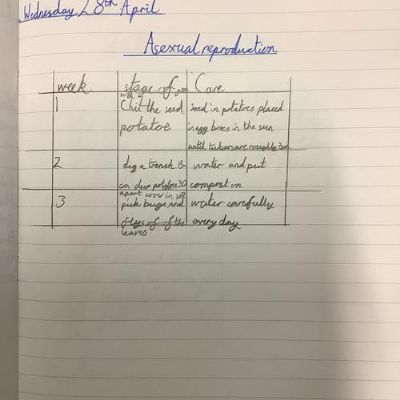 Wednesday 28th April
Asexual reproduction
week stage of Care
1 Chit the seed seed in potatoes placed
potatoe in egg boxes in the sun
until tubers are roughly 3cm
2 dig a trench 15 water and put
cm deep potatoes 30 compost on
apart cover in soil
3 pick bugs and water carefully
of the every day
leaves